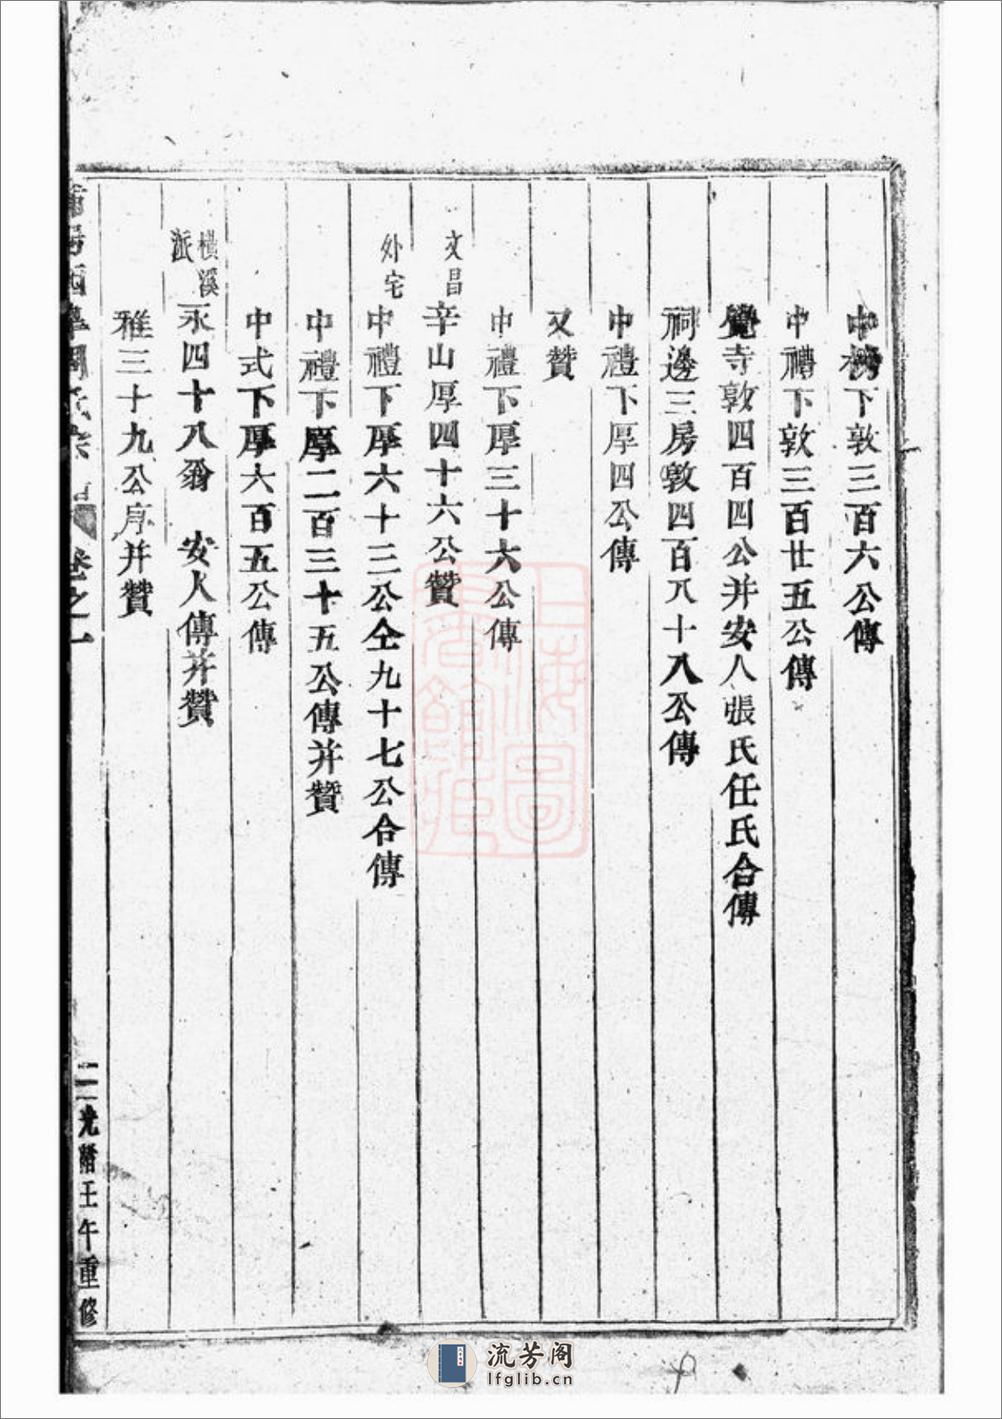 中禮下敦三百六公傳
中禮下敦三百廿五公傳
覺寺敦四百四公并安人張氏任氏合傳
祠邊三房敦四百八十八公傳
中禮下厚四公傳
又贊
中禮下厚三十六公傳
文昌
辛山厚四十六公贊
外宅
中禮下厚六十二公仝九十七公合傳
中禮下厚二百三十五公傳并贊
中式下厚六百五公傳
橫溪派
永四十八翁 安人傳并贊
雅三十九公序并贊
卷之一
二
光緒壬午重修
上海圖書館藏
流芳阁
lfglib.cn